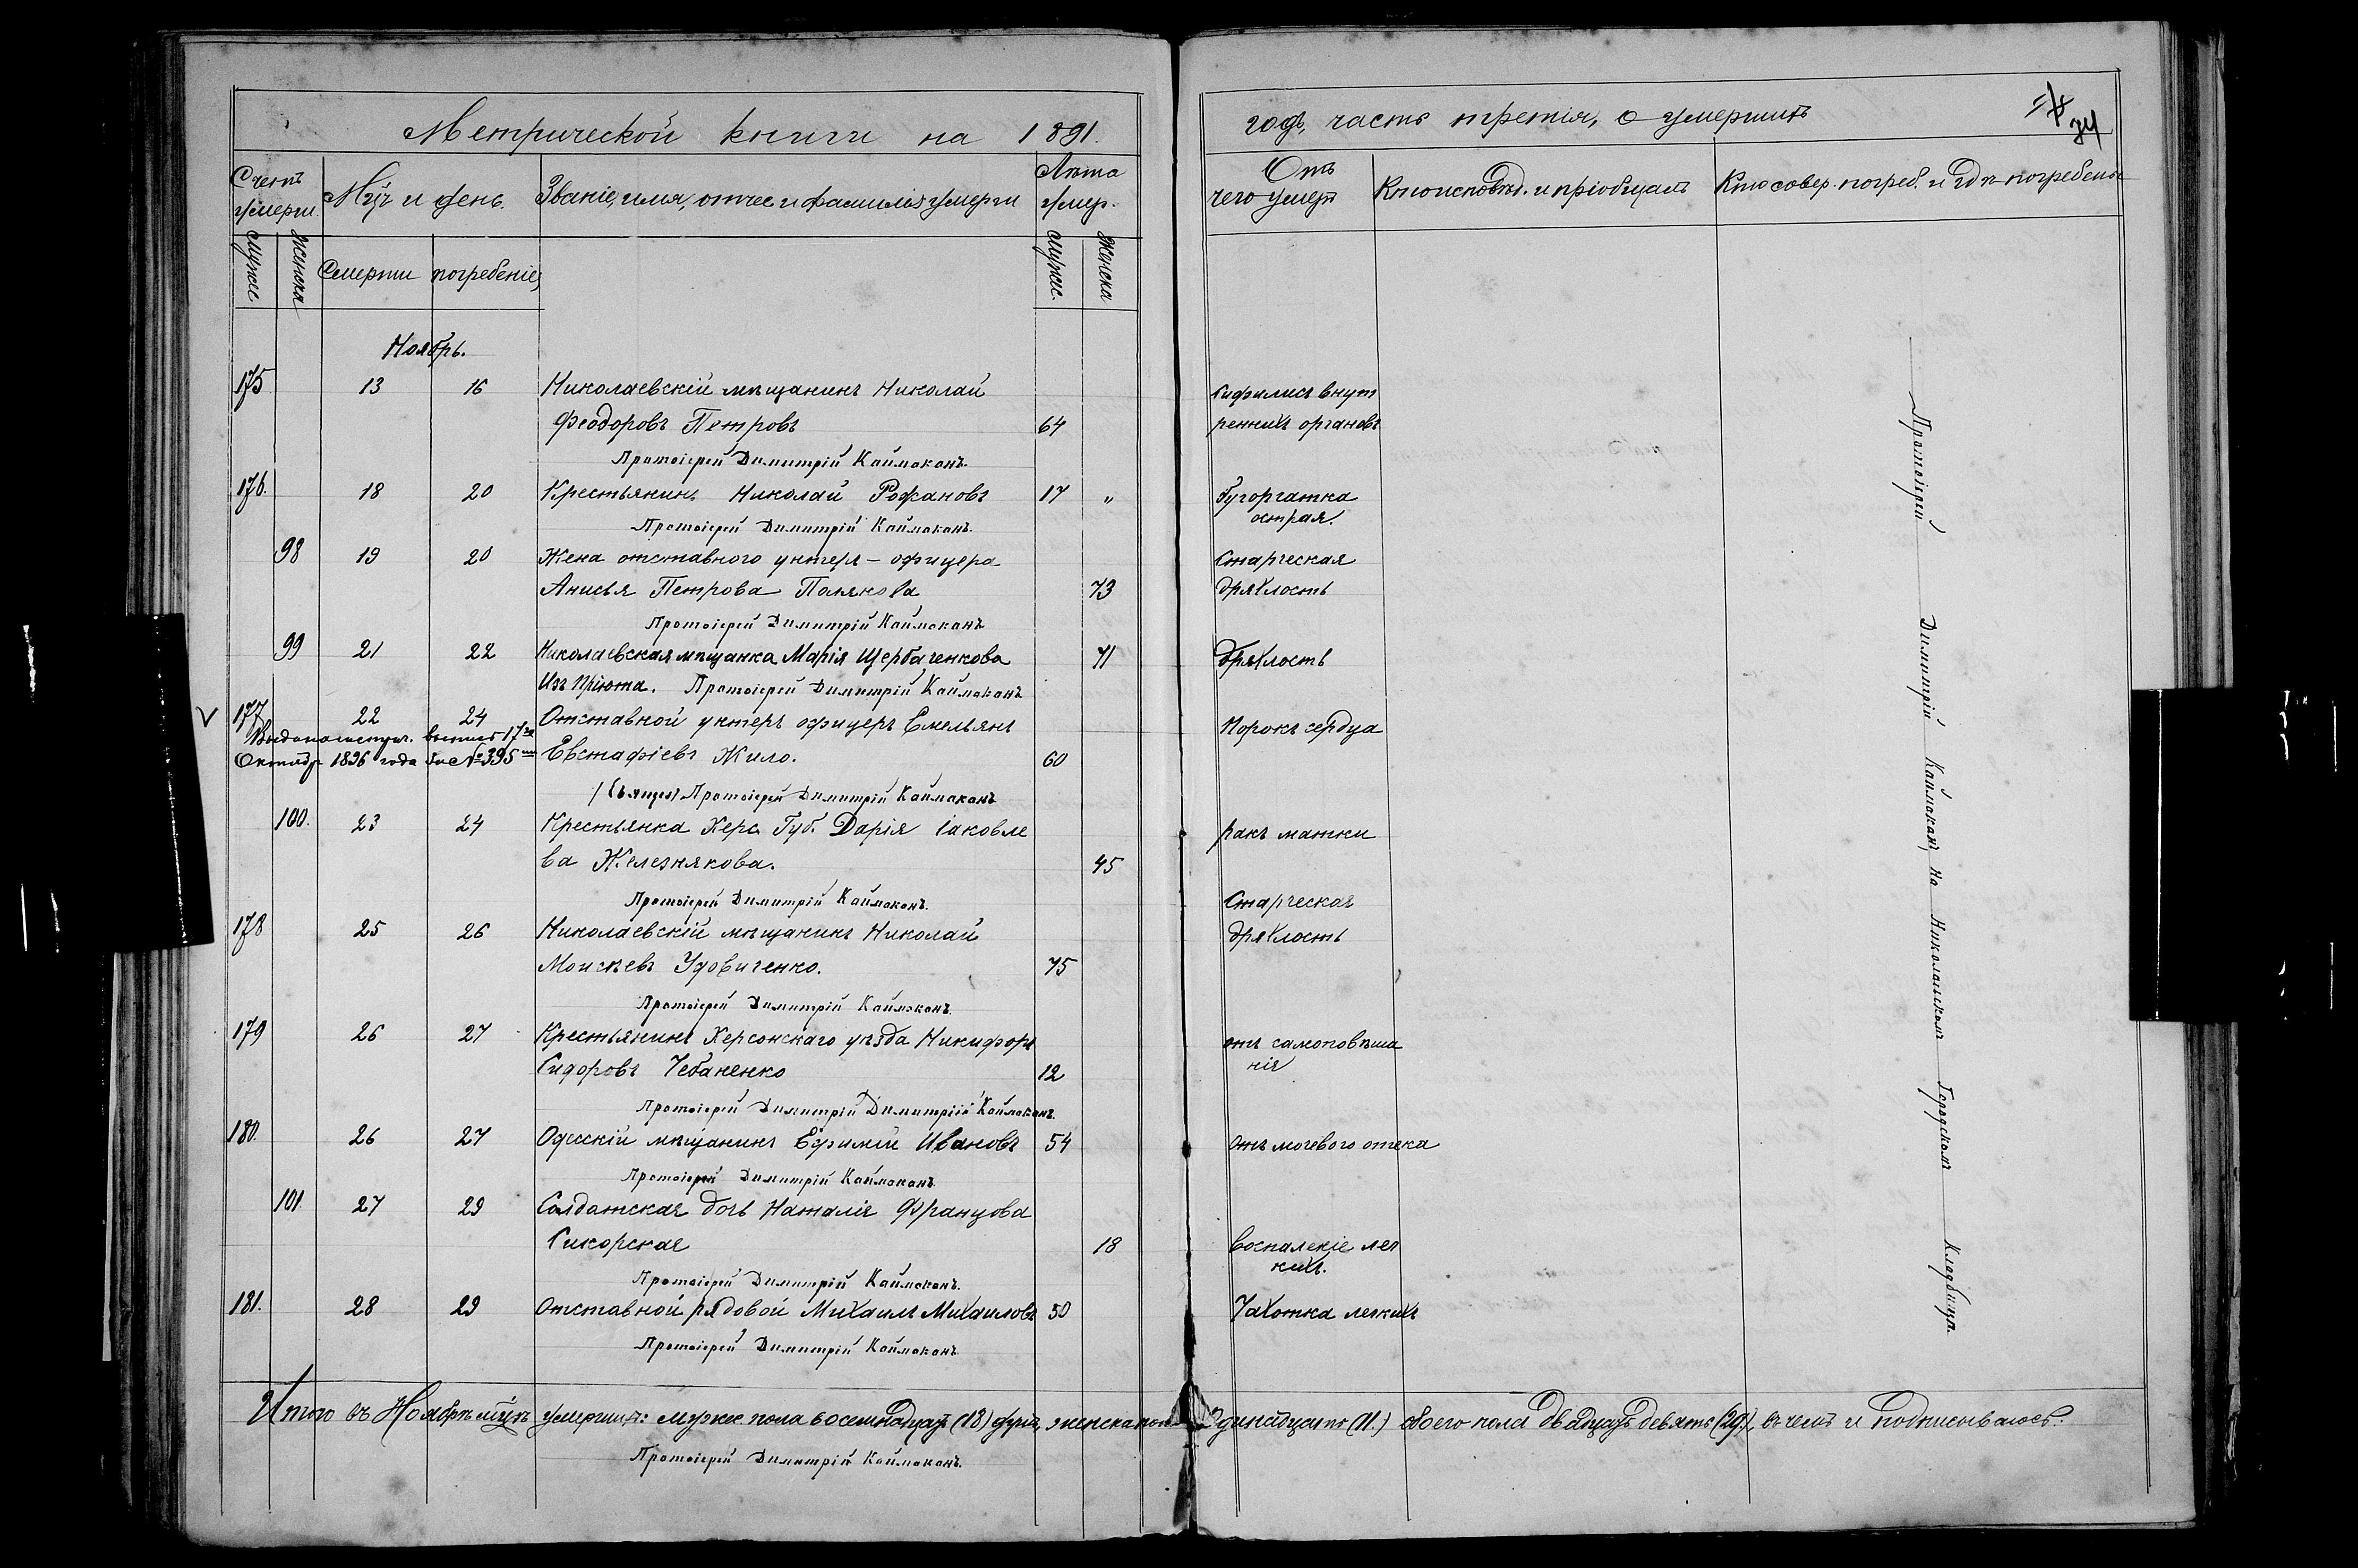 Метрической книги на 1891.
годъ, часть третія, о умершихъ
34
Счетъ умерши.
Мцъ и день.
Званіе, имя, отчес и фамилія умерши
Лѣта умер.
Отъ чего умеръ
Кто исповѣд. и пріобщалъ
Кто совер. погреб. и гдѣ погребены
Мужес
Женска
Смерти
погребеніе,
Мужес.
Женска
Ноябрь.
175 13 16 Николаевскій мѣщанинъ Николай Сифилисъ внут
Феодоровъ Петровъ 64 реннихъ органовъ
Протоіерей Димитрій Каймаканъ.
176. 18 20 Крестьянинъ Николай Рофановъ 17 „ Бугорчатка
острая.
Протоіерей Димитрій Каймаканъ.
98 19 20 Жена отставного унтеръ-офицера Старческая
Анисья Петрова Полякова 73 дряхлость
Протоіерей Димитрій Каймаканъ
99 21 22 Николаевская мѣщанка Марія Щербаченкова 71 Дряхлость
Изъ пріюта. Протоіерей Димитрій Каймаканъ
177 22 24 Отставной унтеръ офицеръ Емельянъ Порокъ сердца
Выдана метрич. выпись 17го
Октябр 1896 года за № 395 Евстафіевъ Жило. 60
Протоіерей Димитрій Каймаканъ
100. 23 24 Крестьянка Херс. Губ. Дарія Іаковле ракъ матки
ва Железнякова. 45
Протоіерей Димитрій Каймаканъ. Старческая
178 25 26 Николаевскій мѣщанинъ Николай дряхлость
Моисеевъ Удовиченко. 75
Протоіерей Димитрій Каймаканъ.
179 26 27 Крестьянинъ Херсонскаго уѣзда Никифоръ отъ самоповѣша
Сидоровъ Чебаненко 12 нія
Протоіерей Димитрій Димитрій Каймаканъ.
180. 26 27 Одесскій мѣщанинъ Ефимій Ивановъ 54 Отъ мочевого отека
Протоіерей Димитрій Каймаканъ.
101. 27 29 Солдатская дочь Наталія Францова
Сикорская 18 Воспаленіе лег
кихъ.
Протоіерей Димитрій Каймаканъ.
181. 28 29 Отставной рядовой Михаилъ Михаиловъ 50 Чахотка легкихъ
Протоіерей Димитрій Каймаканъ.
Протоіерей Димитрій Каймаканъ, на Николаевскомъ Городскомъ Кладбищѣ.
Итого въ Ноябрѣ мцѣ умершихъ: мужес. пола восемнадцать (18) душъ, женска пола Одинадцать (11.) обоего пола двадцать девять (29), въ чемъ и подписываюсь:
Протоіерей Димитрій Каймаканъ.